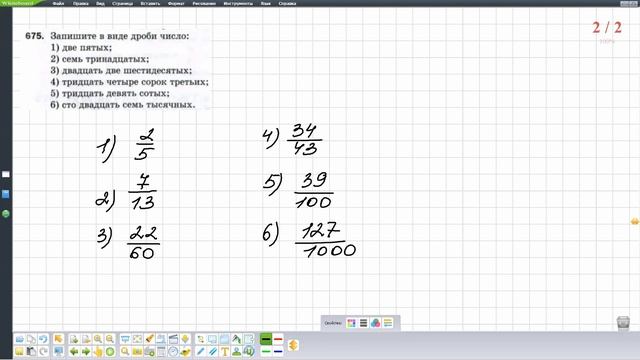 Файл Правка Вид Страница Вставить Формат Рисование Инструменты Язык Справка
2 / 2
100%
675. Запишите в виде дроби число:
1) две пятых;
2) семь тринадцатых;
3) двадцать две шестидесятых;
4) тридцать четыре сорок третьих;
5) тридцать девять сотых;
6) сто двадцать семь тысячных.
1) 2/5
2) 7/13
3) 22/60
4) 34/43
5) 39/100
6) 127/1000
Свойства: